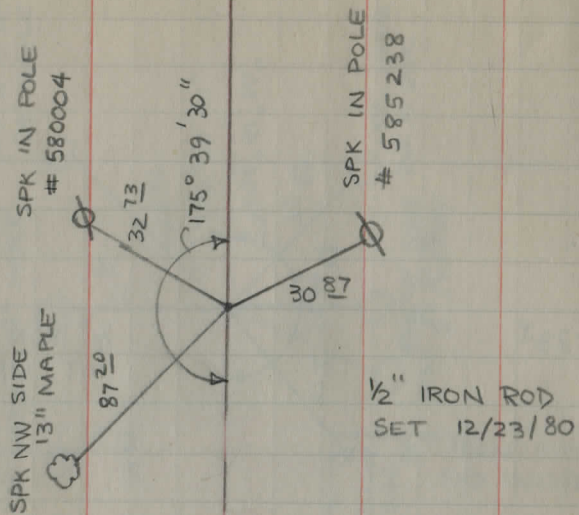 SPK NW SIDE
13" MAPLE
SPK IN POLE
# 580004
87 20
32 73
175° 39' 30"
30 87
SPK IN POLE
# 585238
1/2" IRON ROD
SET 12/23/80